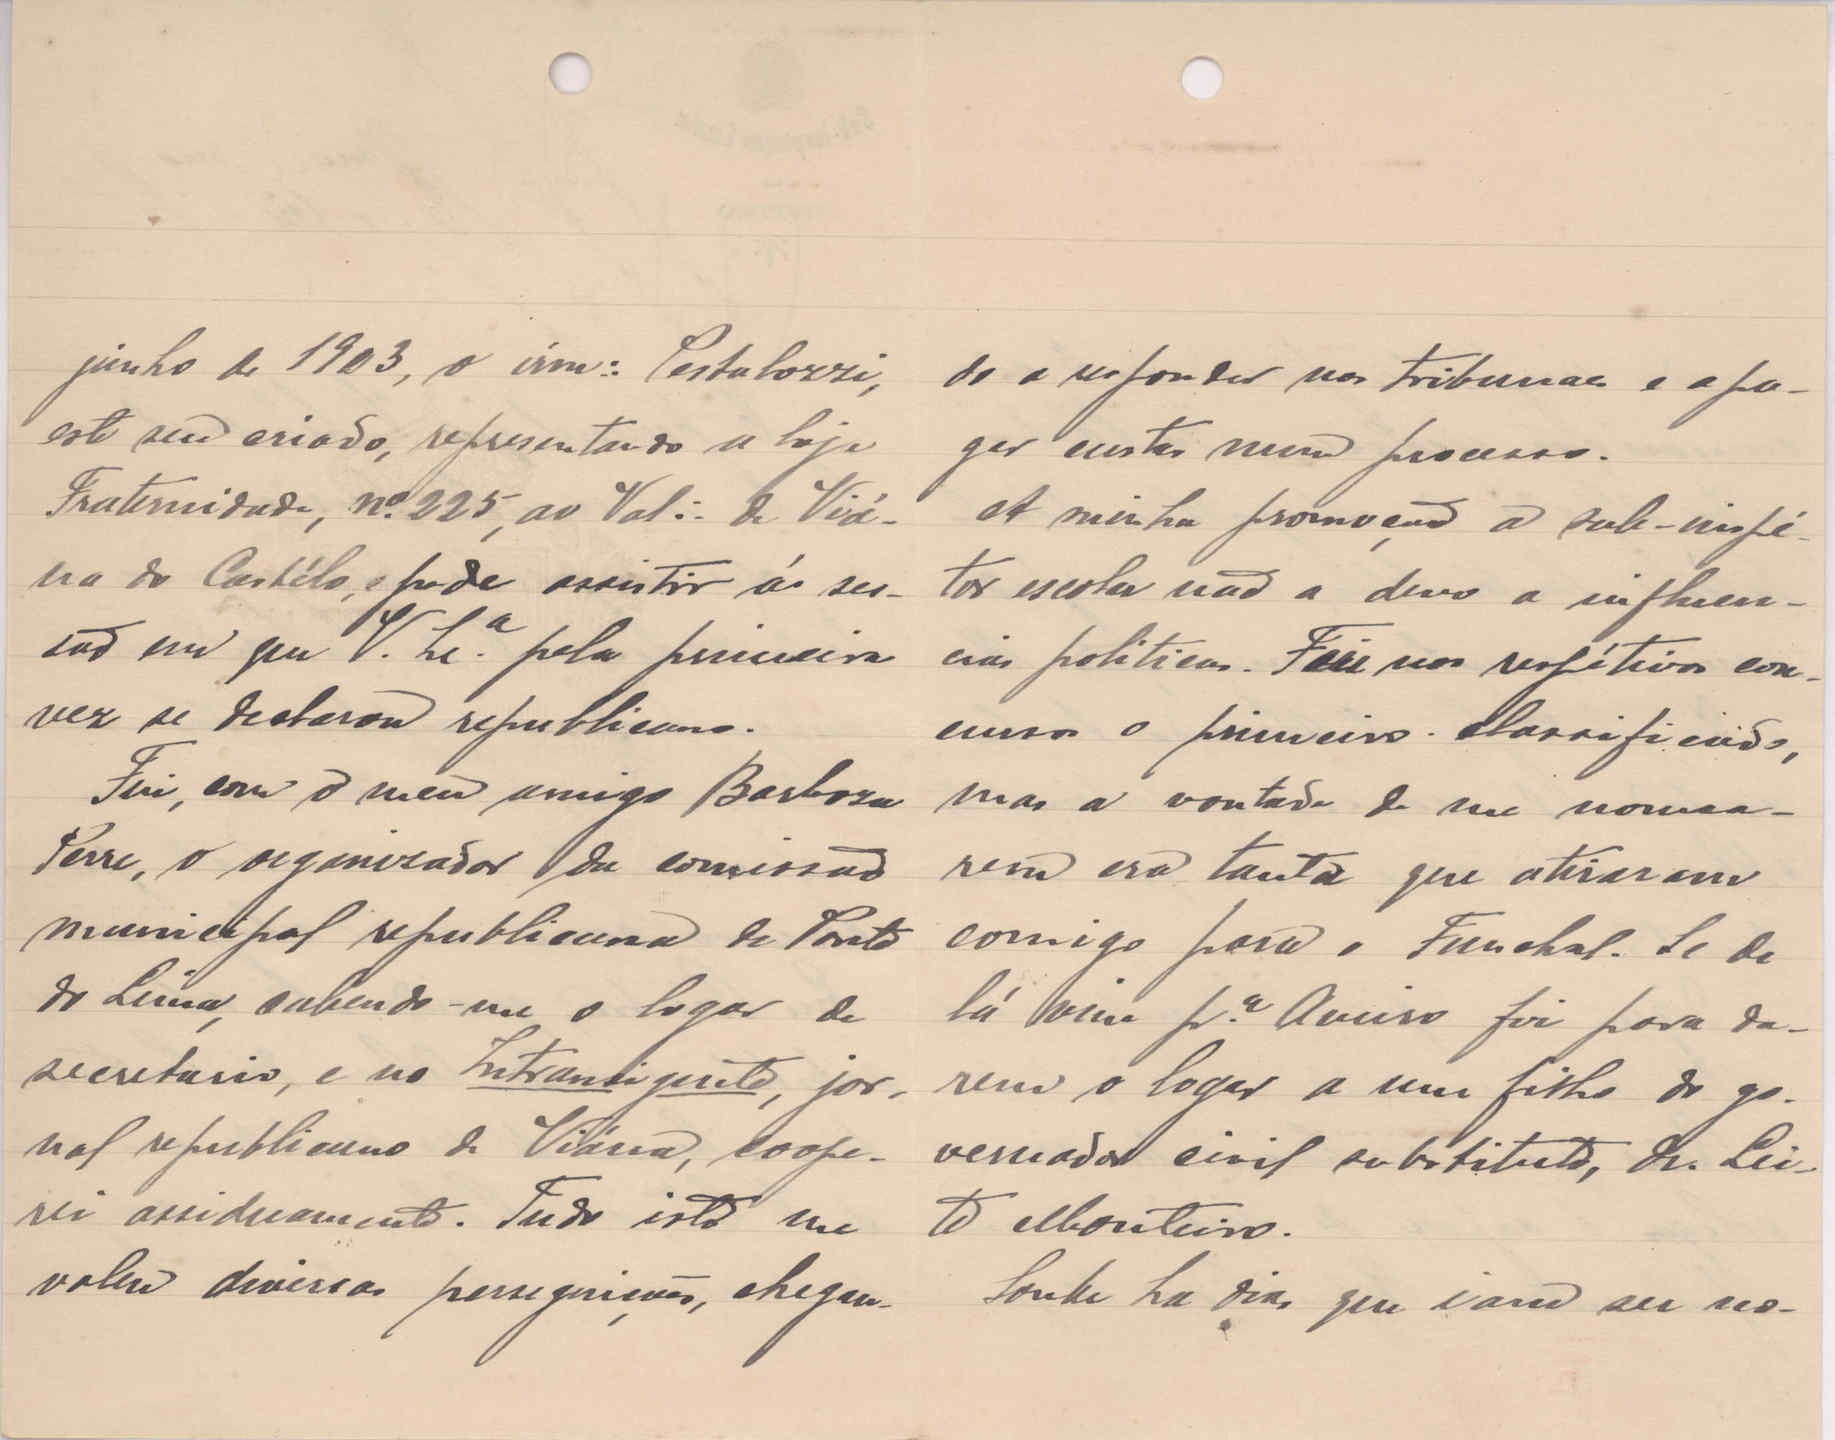 junho de 1903, o irm∴ Pestalozzi,
este seu criado, representando a loja
Fraternidade, nº 225, ao Val∴ de Viá-
na do Castélo, pode assistir á ses-
são em que V. Ex.ª pela primeira
vez se declarou republicano.
Fui, com o meu amigo Barbosa
Perre, o organizador da comissão
municipal republicana de Ponte
do Lima, cabendo-me o logar de
secretario, e no Intransigente, jor-
nal republicano de Viána, coope-
rei assiduamente. Tudo isto me
valeu diversas perseguições, chegan-
do a responder nos tribunaes e a pa-
gar custas num processo.
A minha promoção a sub-inspé-
tor escolar não a devo a influen-
cias politicas. Fui nos respétivos con-
cursos o primeiro classificado,
mas a vontade de me nomea-
rem era tanta que atiraram
comigo para o Funchal. Se de
lá vim p.ª Aveiro foi para da-
rem o logar a um filho do go-
vernador civil substituto, Dr. Lei-
te Monteiro.
Soube ha dias que iam ser no-